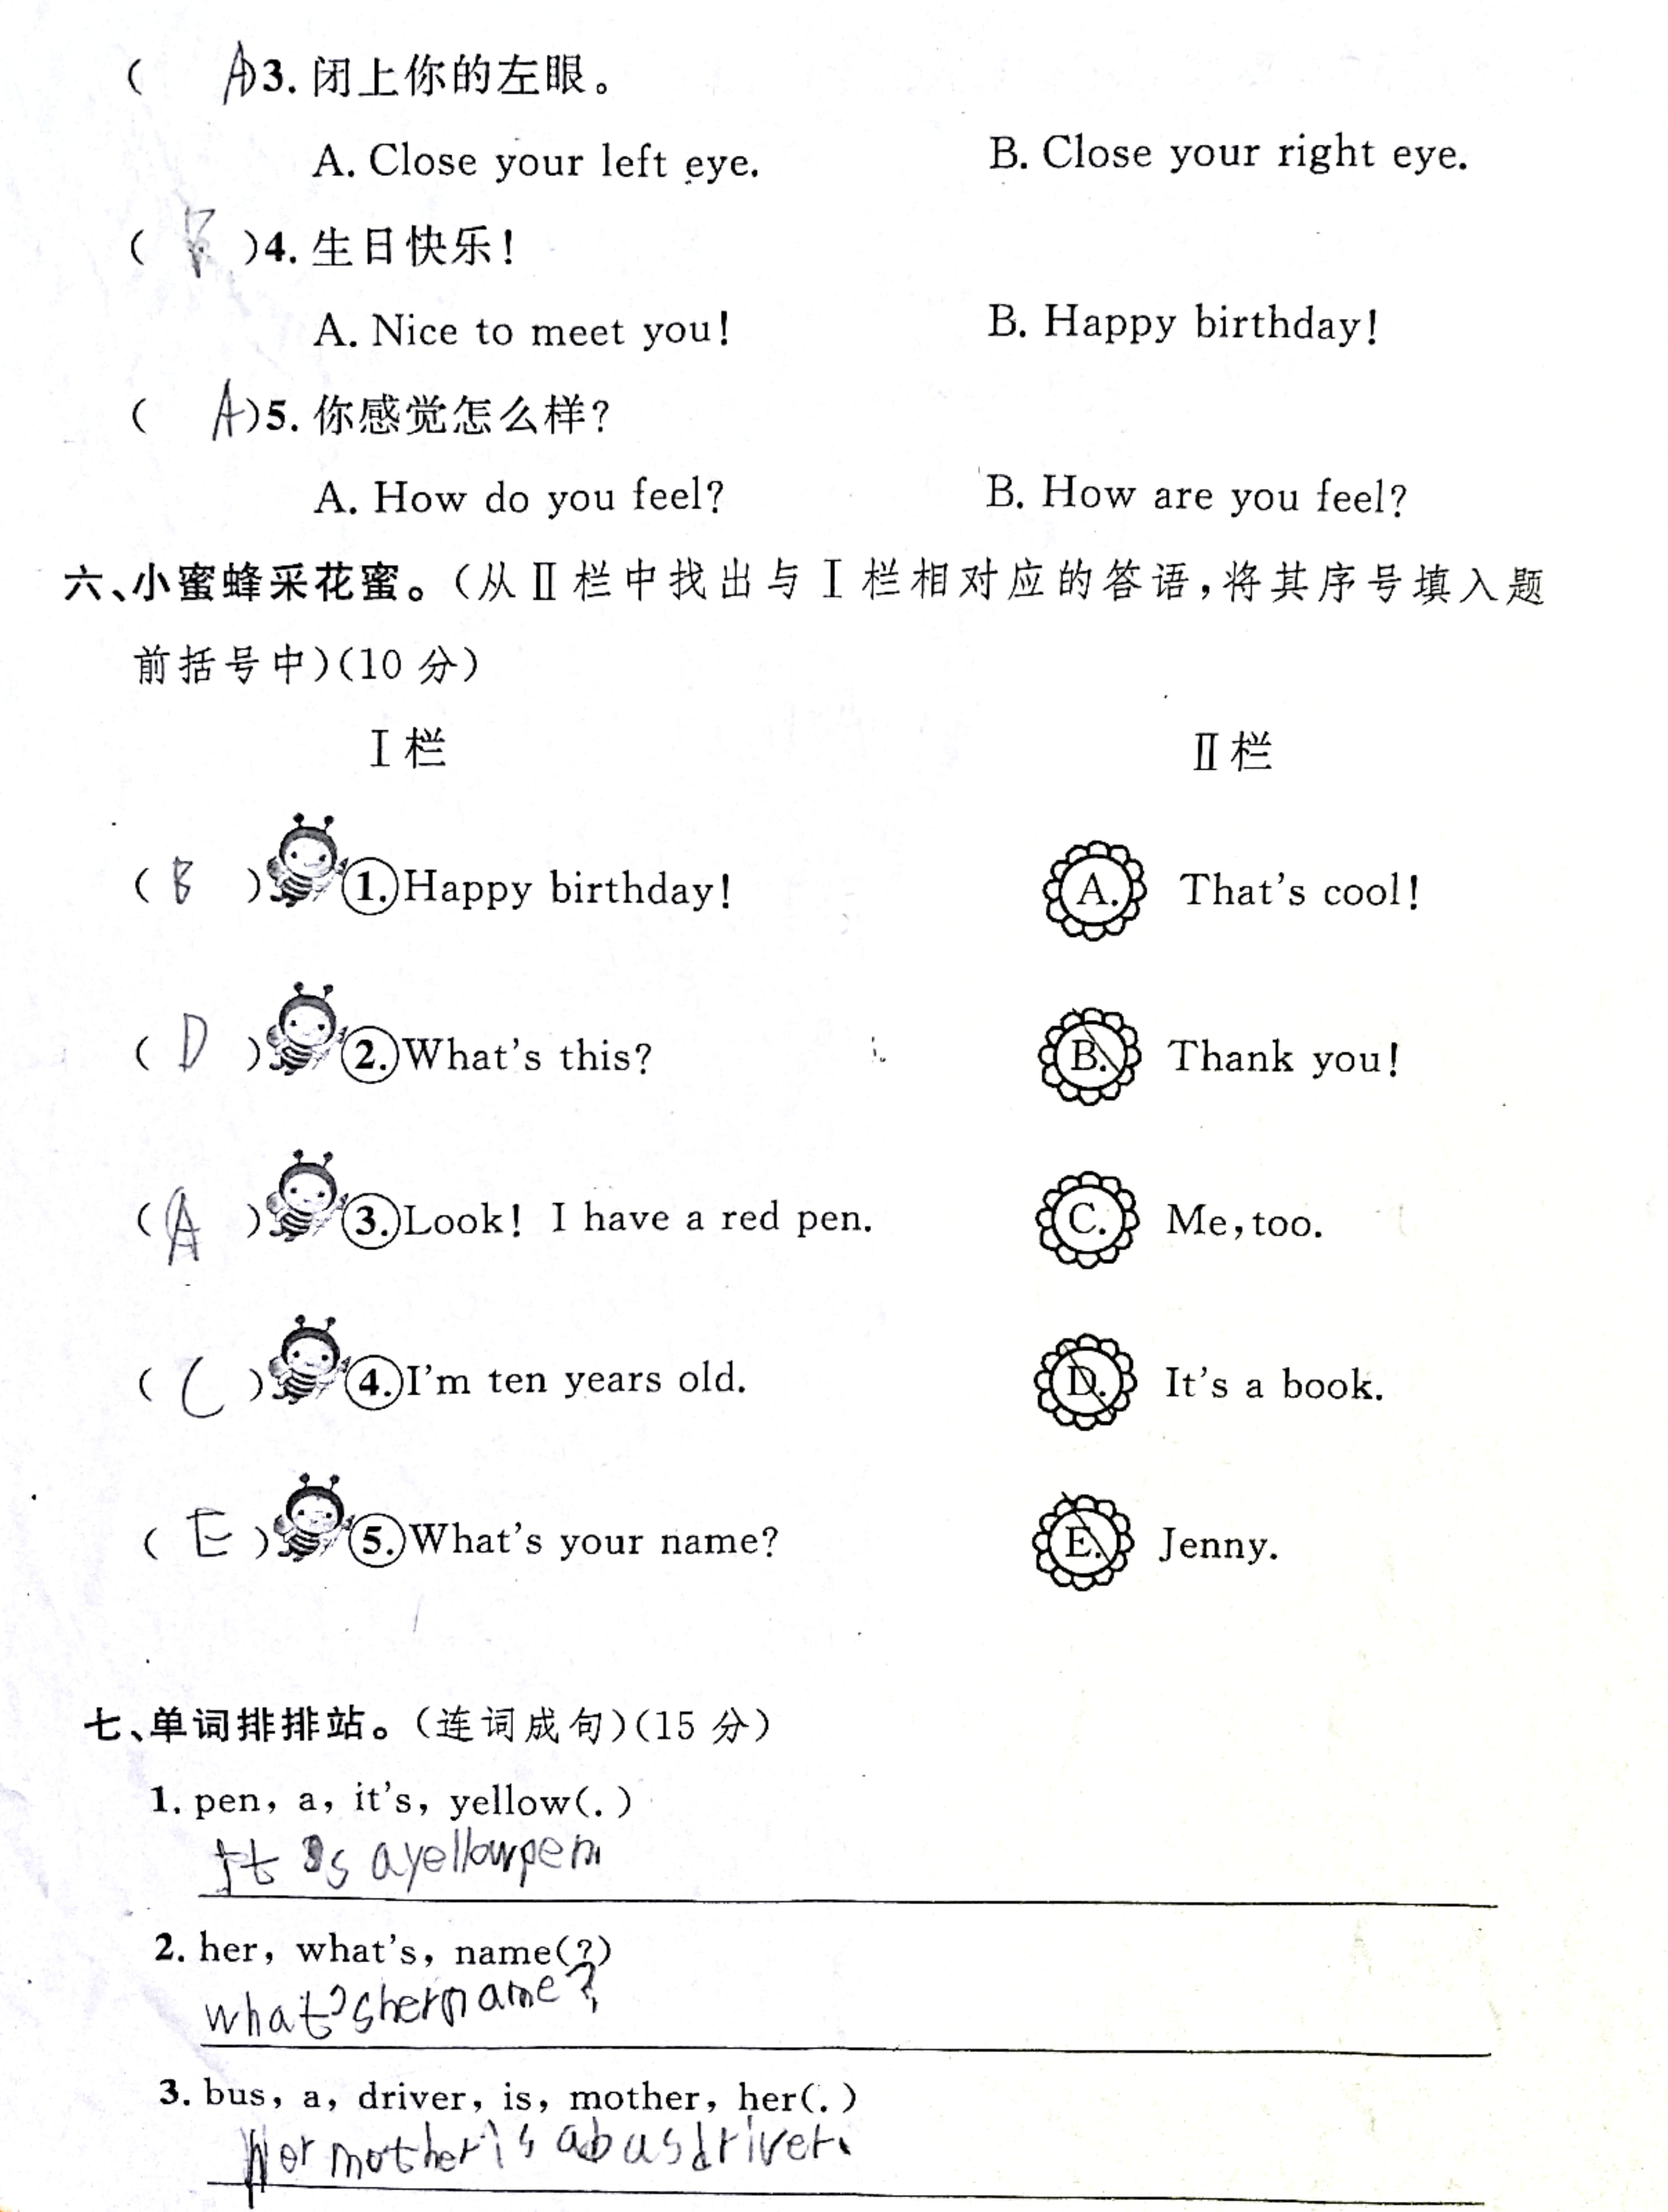 ( A )3. 闭上你的左眼。
A. Close your left eye.  B. Close your right eye.
( B )4. 生日快乐!
A. Nice to meet you!  B. Happy birthday!
( A )5. 你感觉怎么样?
A. How do you feel?  B. How are you feel?
六、小蜜蜂采花蜜。(从Ⅱ栏中找出与Ⅰ栏相对应的答语,将其序号填入题
前括号中)(10 分)
Ⅰ栏  Ⅱ栏
( B ) 1. Happy birthday!  A. That's cool!
( D ) 2. What's this?  B. Thank you!
( A ) 3. Look! I have a red pen.  C. Me, too.
( C ) 4. I'm ten years old.  D. It's a book.
( E ) 5. What's your name?  E. Jenny.
七、单词排排站。(连词成句)(15 分)
1. pen, a, it's, yellow(. )
It's a yellow pen.
2. her, what's, name(?)
what's her name?
3. bus, a, driver, is, mother, her(. )
Her mother is a bus driver.